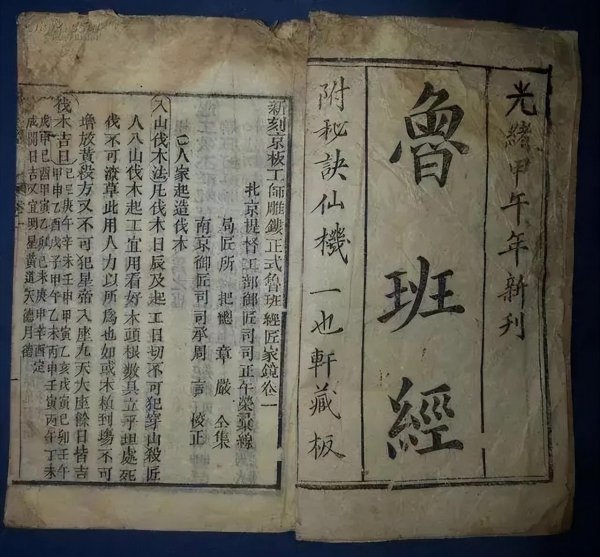 光緒甲午年新刊
魯班經
附秘訣仙機 一也軒藏板
新刻京板工師雕鏤正式魯班經匠家鏡卷一
北京提督工部御匠司司正午榮彙編
局匠所 把總 章嚴 仝集
南京御匠司司承周言 校正
人家起造伐木
入山伐木法凡伐木日辰及起工日切不可犯穿山殺匠
人入山伐木起工宜用看好木頭根數具立平坦處死
伐不可潦草此用人力以所為也如或木植到場不可
堆放黃殺方又不可犯皇帝八座九天大座餘日皆吉
伐木吉日己巳庚午辛未壬申甲寅乙亥戊寅己卯壬午
甲申乙酉戊子甲午乙未丙申壬寅丙午丁未
戊申己酉甲寅乙卯己未庚申辛酉定
成開日吉又宜明星黃道天德月德